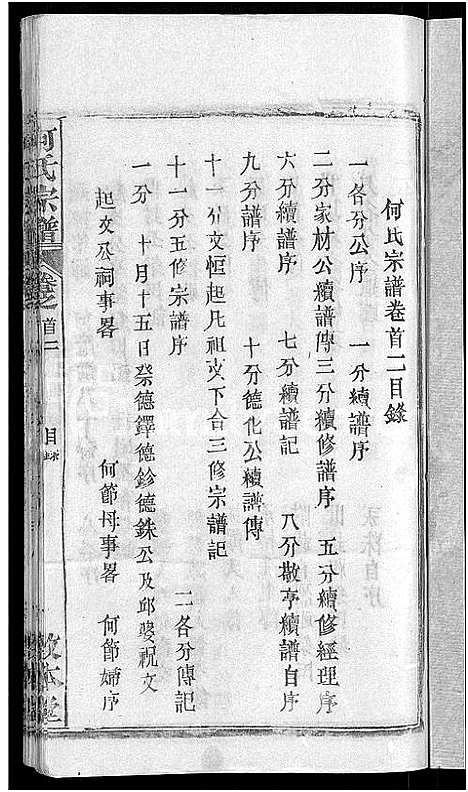 何氏宗譜卷首二目錄
一各分公序　一分續譜序
二分家材公續譜傳三分續修譜序　五分續修經理序
六分續譜序　七分續譜記　八分敬亭續譜自序
九分譜序　十分德化公續譜傳
十一分文恒起凡祖支下合三修宗譜記
十一分五修宗譜序　二各分傳記
一分　十月十五日祭德鐸德鉁德銖公及邱嫂祝文
起文公祠事畧　何節母事畧　何節婦序
何氏宗譜　卷之首二　目錄　敦本堂